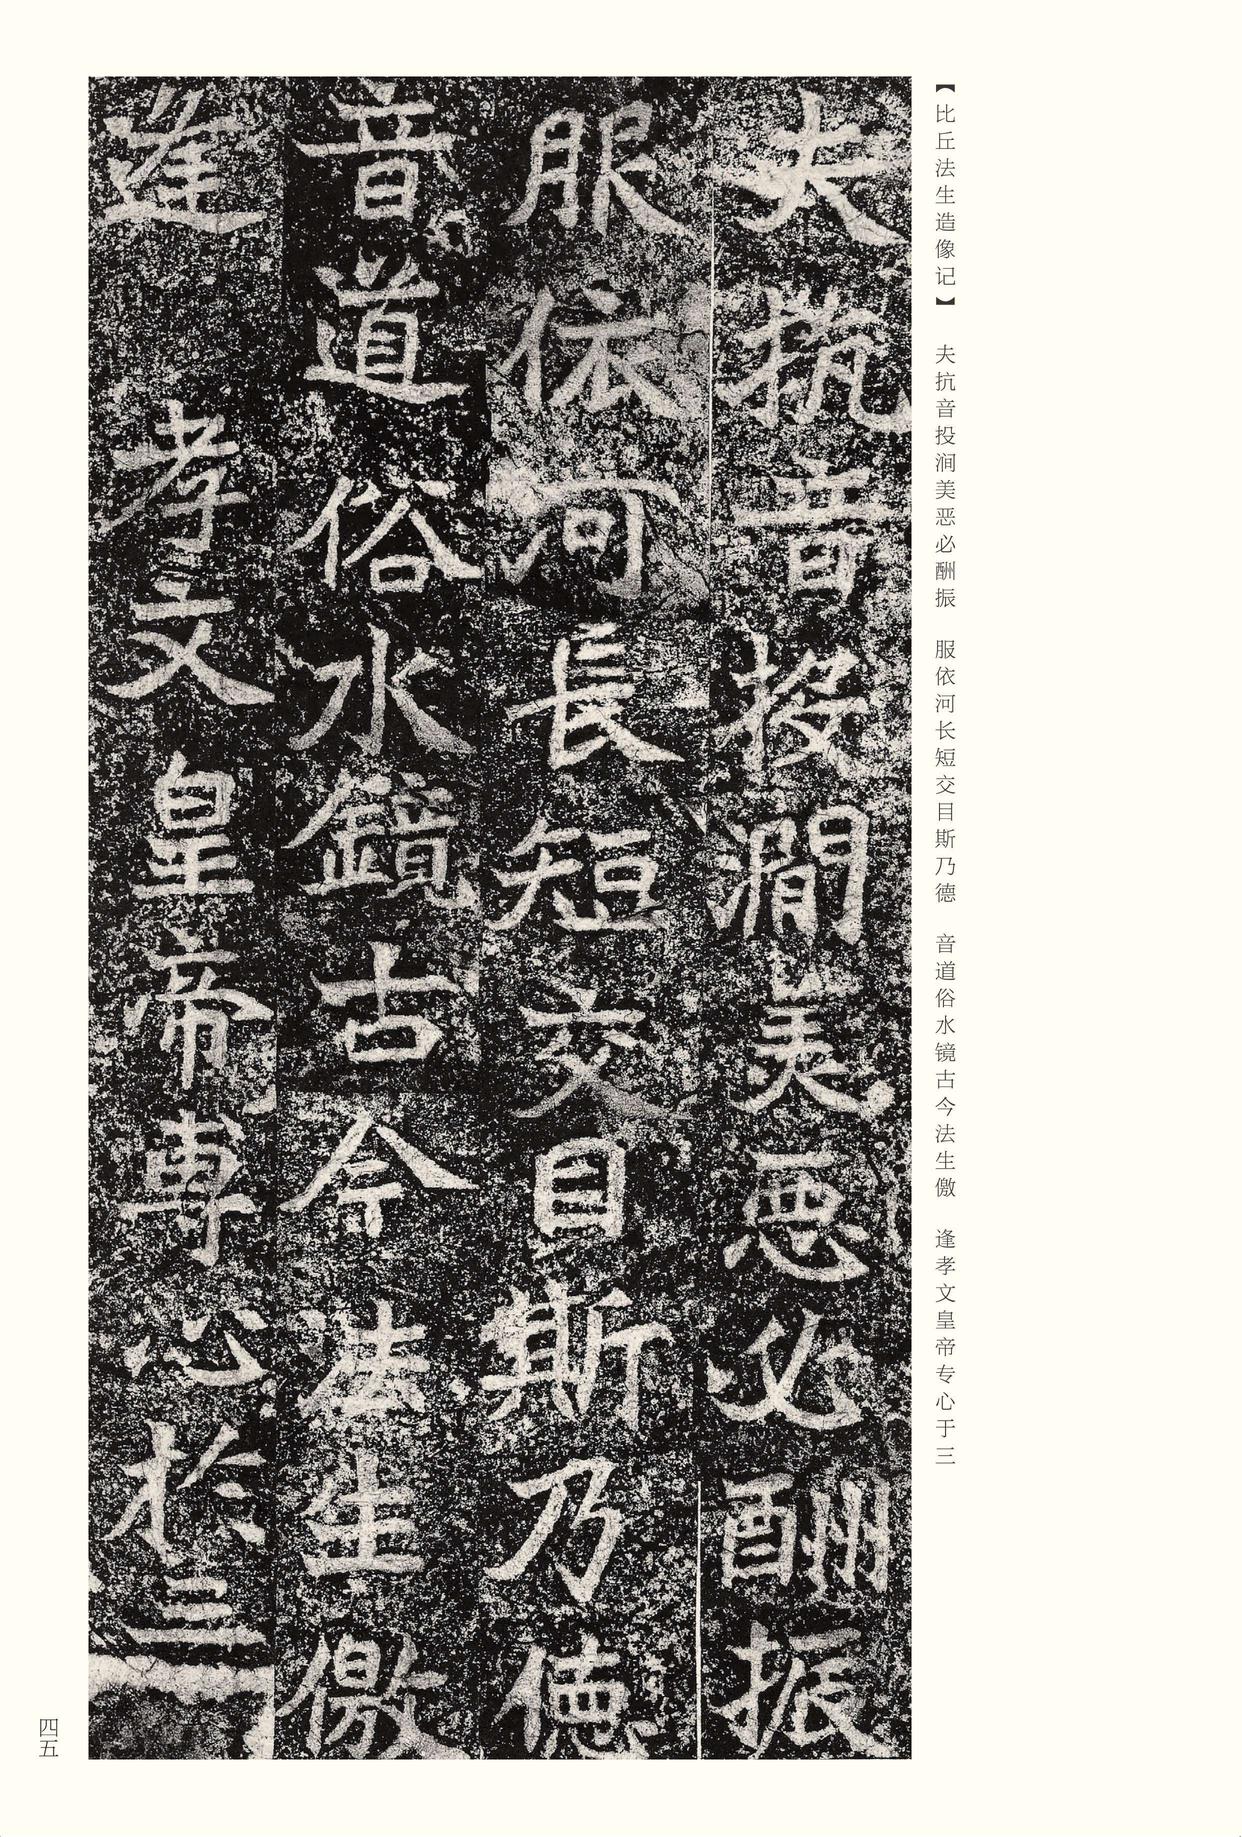 【比丘法生造像记】 夫抗音投涧美恶必酬振 服依河长短交目斯乃德 音道俗水镜古今法生儌 逢孝文皇帝专心于三
夫抗音投澗美惡必酬振
服依河長短交目斯乃德
音道俗水鏡古今法生儌
逢孝文皇帝專心於三
四五